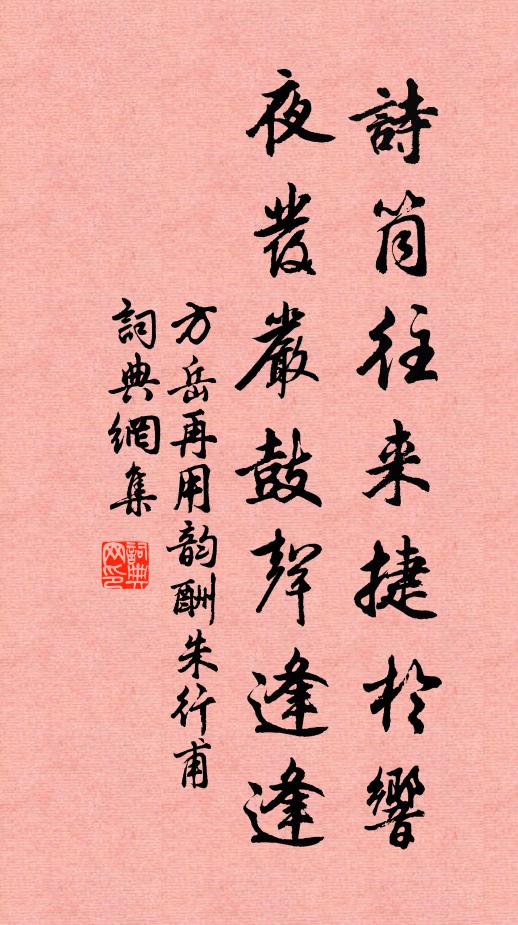 詩筒往来捷於響
夜發嚴鼓聲逢逢
方岳再用韵酬朱行甫
詞典網集
詞典網印